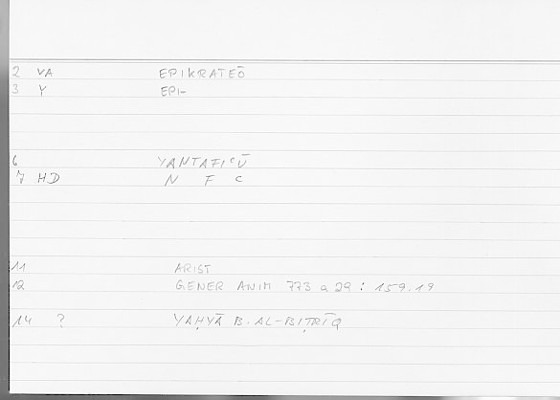 2 VA EPIKRATEŌ
3 Y EPI-
6 YANTAFIʿŪ
7 HD N F ʿ
11 ARIST
12 GENER ANIM 773 a 29 : 159.19
14 ? YAḤYĀ B. AL-BIṬRĪQ